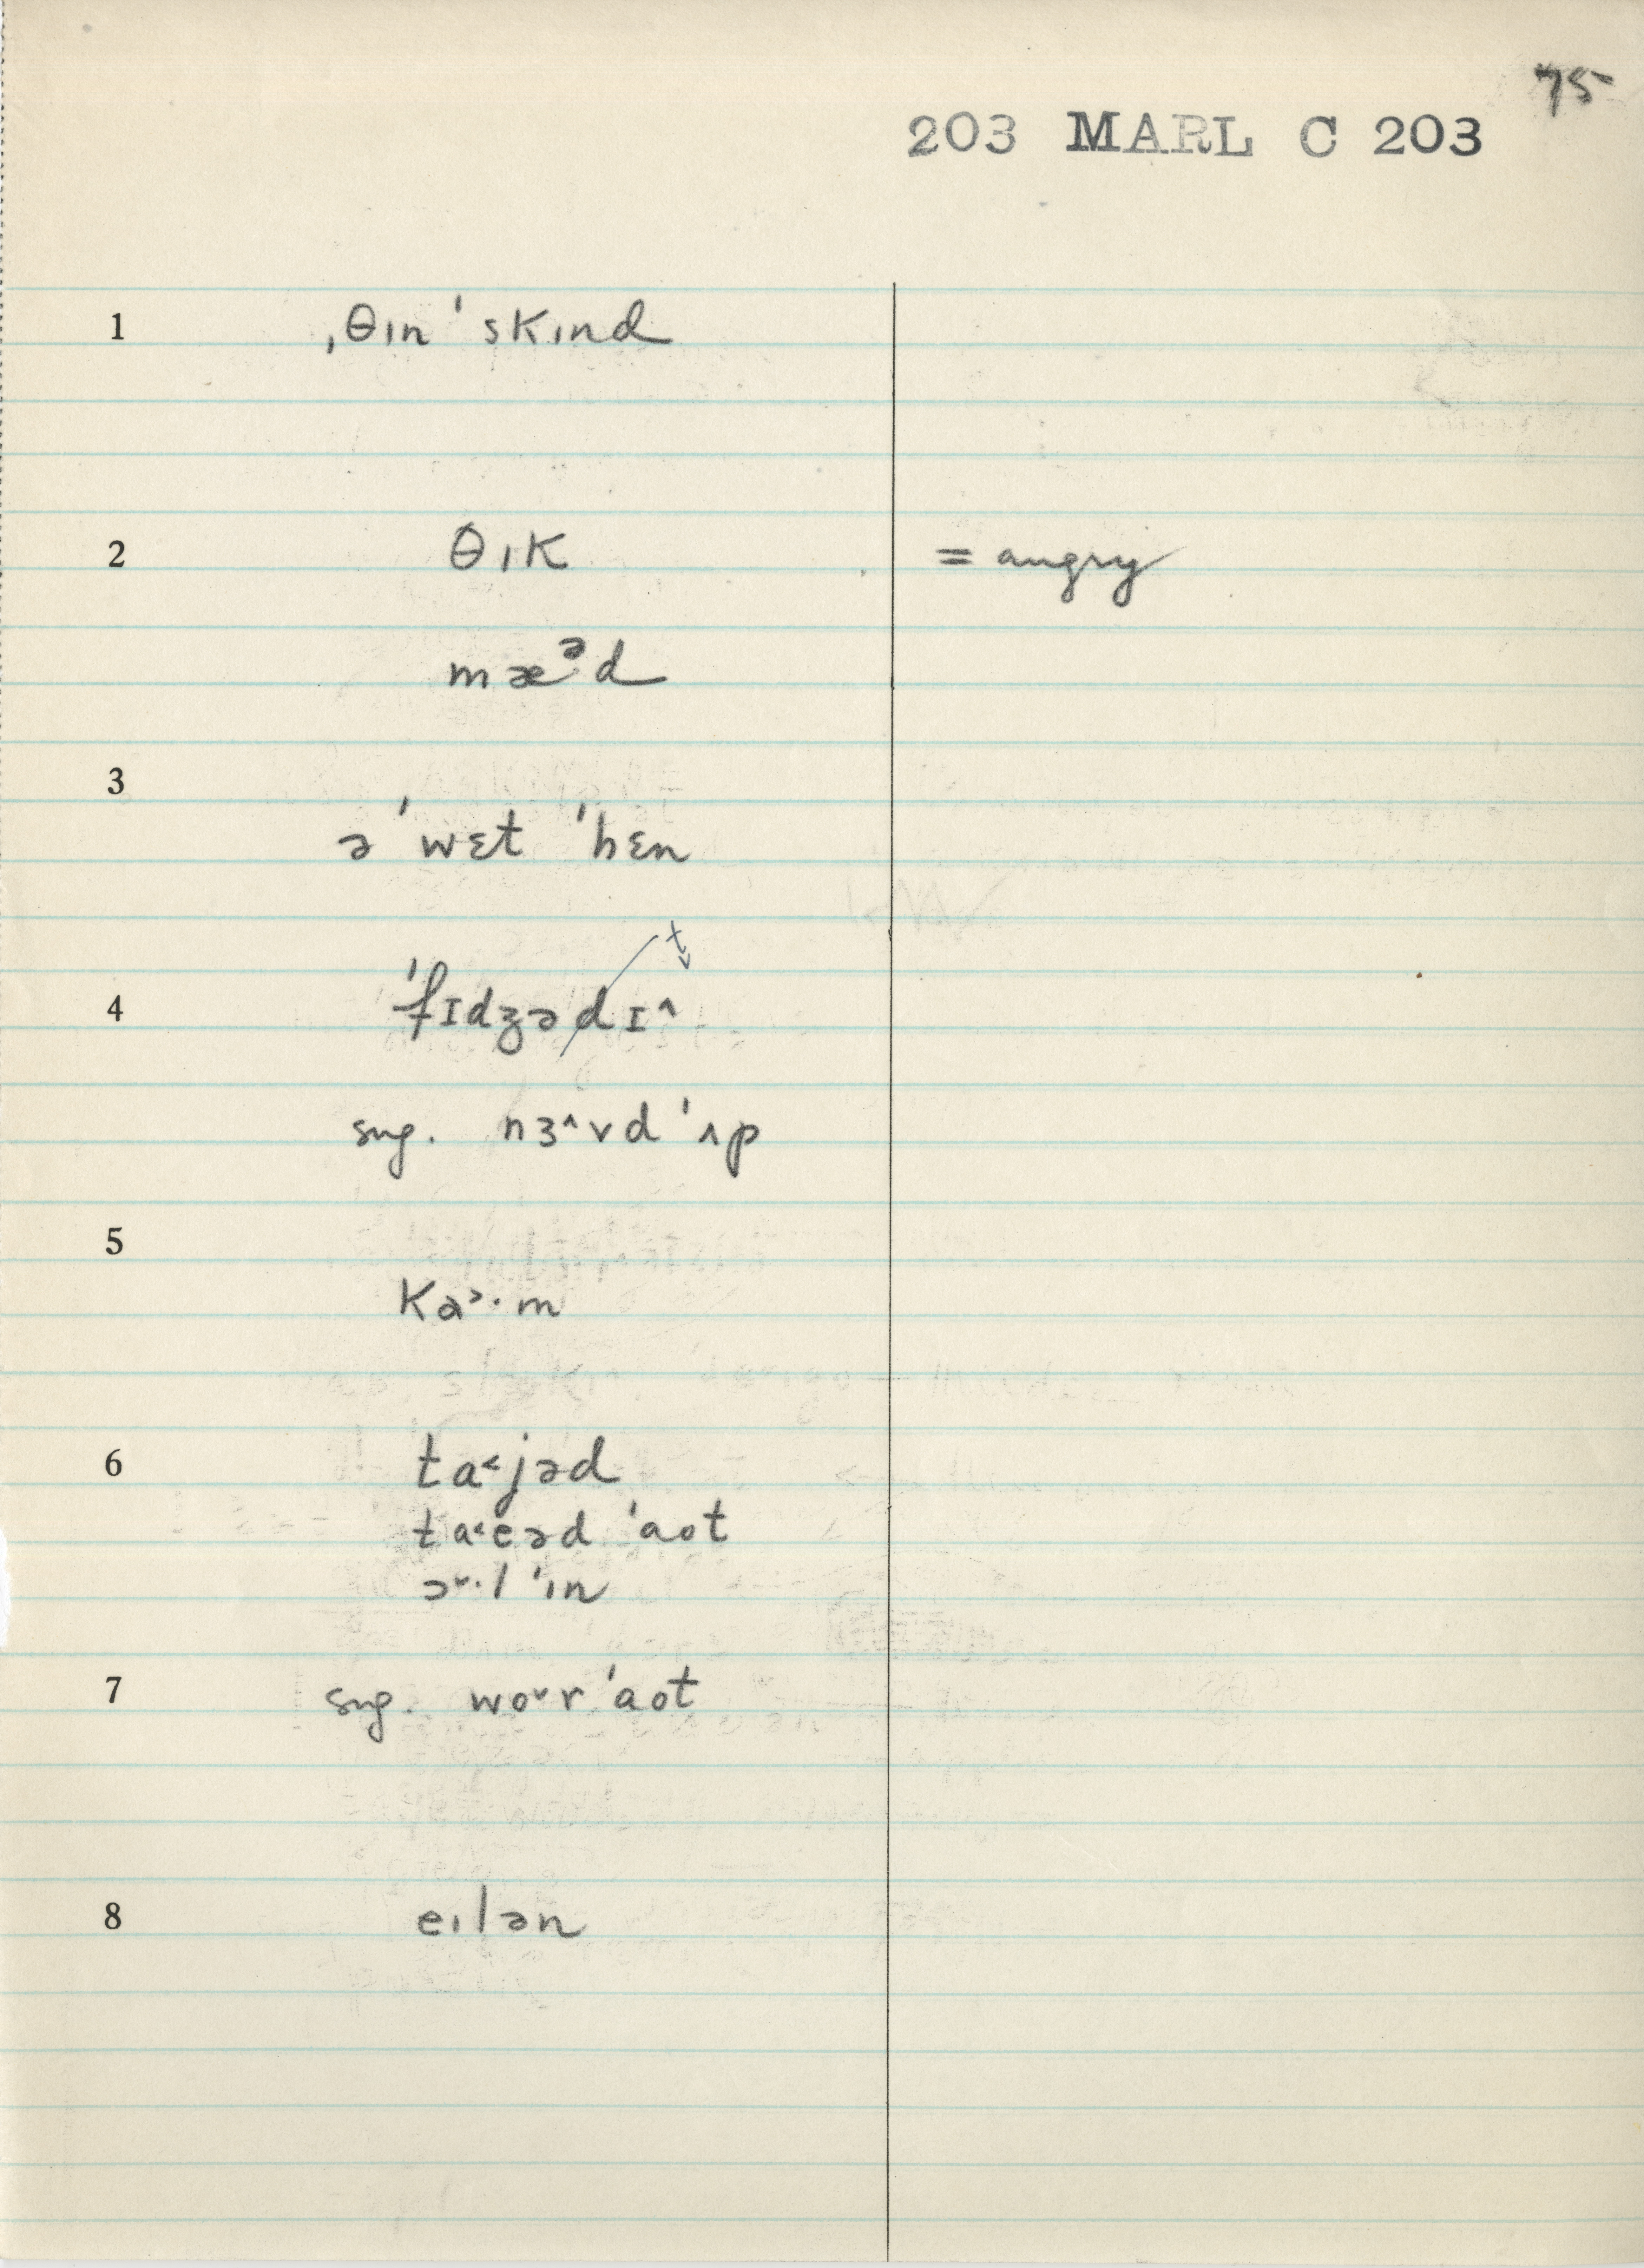 75
203 MARL C 203
1 ˌθɪn ˈskɪnd
2 θɪk = angry
mæᵊd
3
ə ˈwɛt ˈhɛn
t̬
4 ˈfɪdʒədɪ^
sug. nɜ^vd ˈʌp
5
ka>·m
6 ta<jəd
ta<eəd ˈaot
ɔv·l ˈɪn
7 sug. wovr ˈaot
8 eɪlən